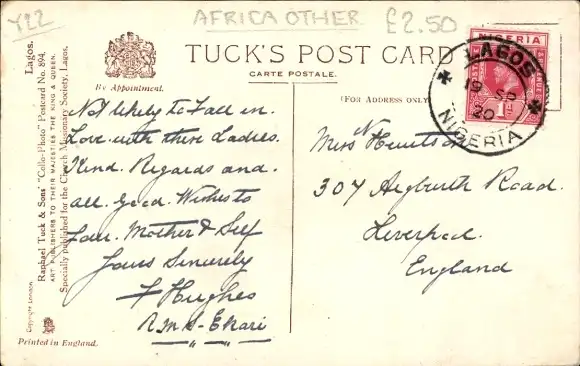 Y22
AFRICA OTHER £2.50
By Appointment.
TUCK'S POST CARD
CARTE POSTALE.
(FOR ADDRESS ONLY
NIGERIA
POSTAGE REVENUE
1D
LAGOS
19 SP
20
NIGERIA
Lagos.
Raphael Tuck & Sons' "Collo-Photo" Postcard No. 894.
ART PUBLISHERS TO THEIR MAJESTIES THE KING & QUEEN.
Specially published for the Church Missionary Society, Lagos.
Copyright London
Printed in England.
Not likely to Fall in.
Love with these Ladies.
Kind. Regards and.
all. Good. Wishes to
Your. Mother & Self
Yours Sincerely
F Hughes
R.M.S. Ekari
Miss Hewitson
307 Aigburth Road.
Liverpool.
England